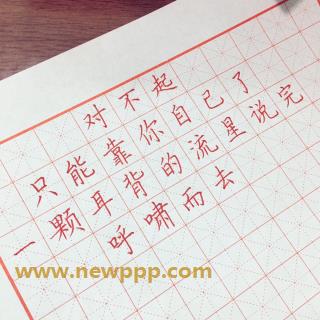 对不起
只能靠你自己了
一颗耳背的流星说完
呼啸而去
www.newppp.com